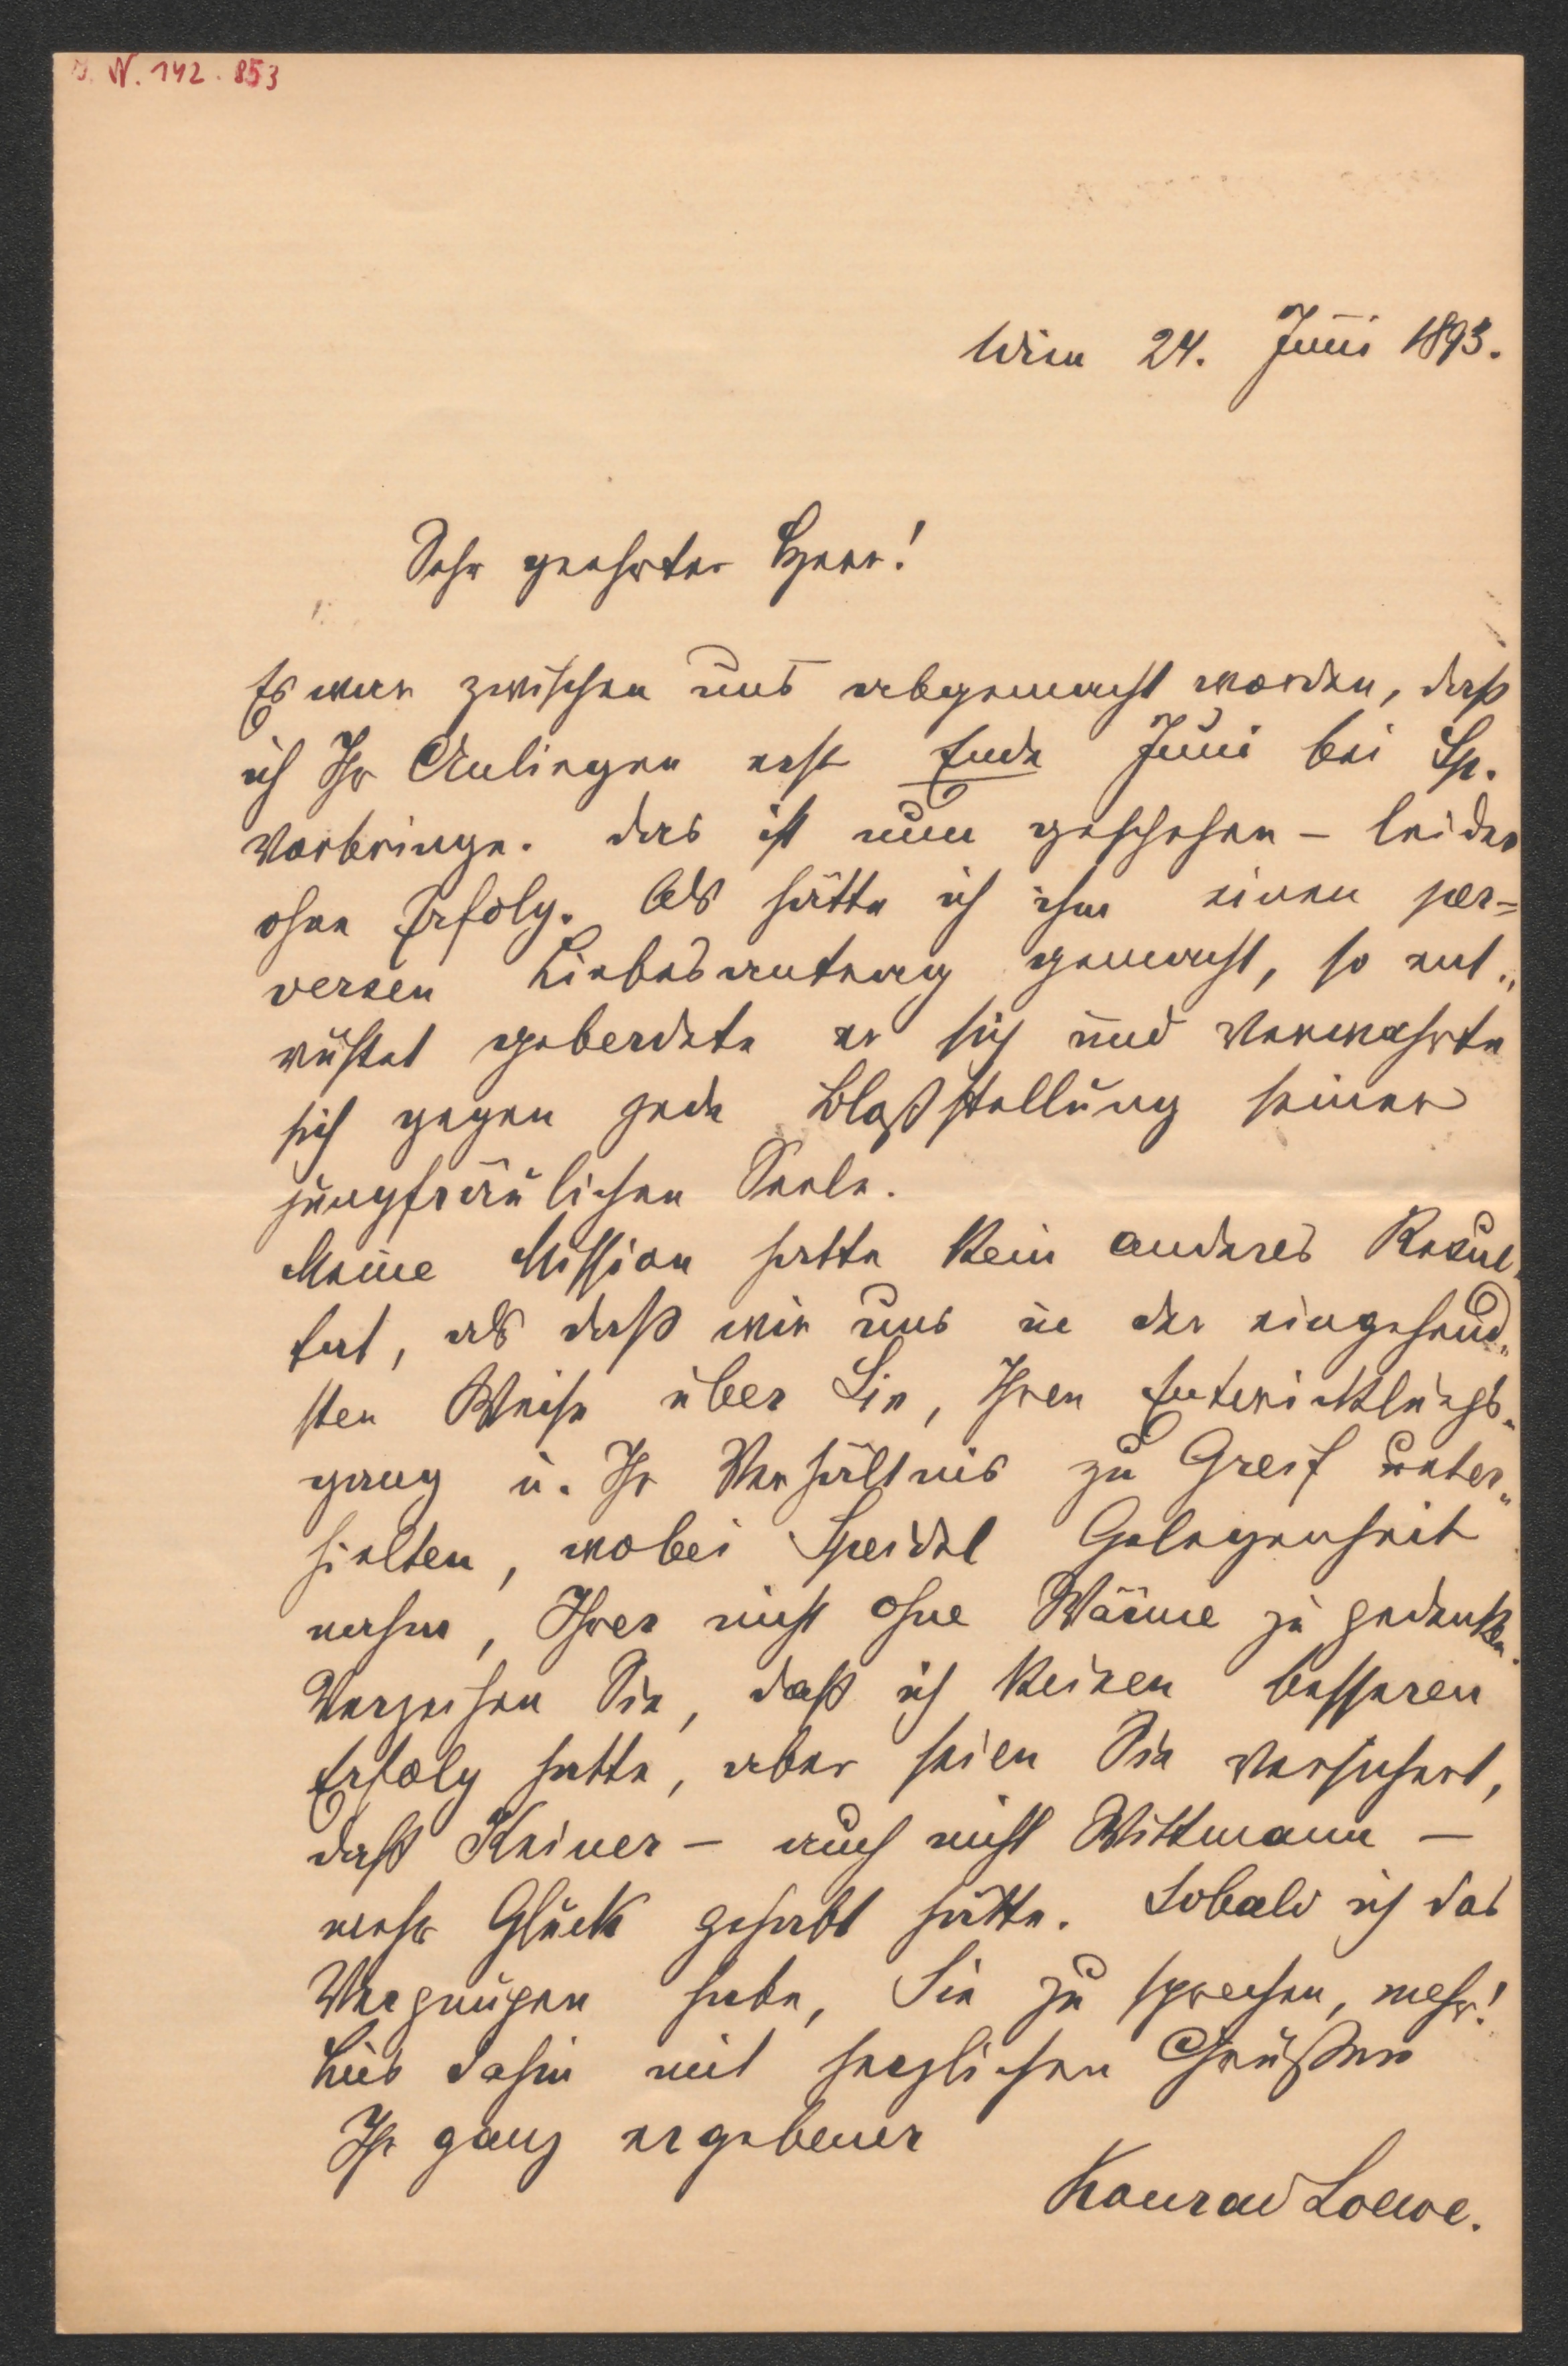 J. N. 142.853
Wien 24. Juni 1893.
Sehr geehrter Herr!
Es war zwischen uns abgemacht worden, daß
ich Ihr Anliegen erst Ende Juni bei Sp.
vorbringe. Das ist nun geschehen – leider
ohne Erfolg. Als hätte ich ihm einen per=
versen Liebesantrag gemacht, so ent„
rüstet geberdete er sich und verwahrte
sich gegen jede Bloßstellung seiner
jungfräulichen Seele.
Meine Mission hatte kein anderes Resul„
tat, als daß wir uns in der eingehend„
sten Weise über Sie, Ihren Entwicklungs„
gang u. Ihr Verhältnis zu Greif unter„
hielten, wobei Speidel Gelegenheit
nahm, Ihrer nicht ohne Wärme zu gedenken.
Verzeihen Sie, daß ich keinen besseren
Erfolg hatte, aber seien Sie versichert,
daß Keiner – auch nicht Wittmann –
mehr Glück gehabt hätte. Sobald ich das
Vergnügen habe, Sie zu sprechen, mehr!
Bis dahin mit herzlichen Grüßen
Ihr ganz ergebener
Konrad Loewe.